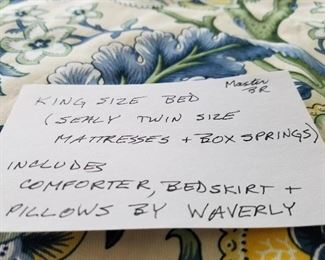 Master
BR
KING SIZE BED
(SEALY TWIN SIZE
MATTRESSES + BOX SPRINGS)
INCLUDES
COMFORTER, BEDSKIRT +
PILLOWS BY WAVERLY